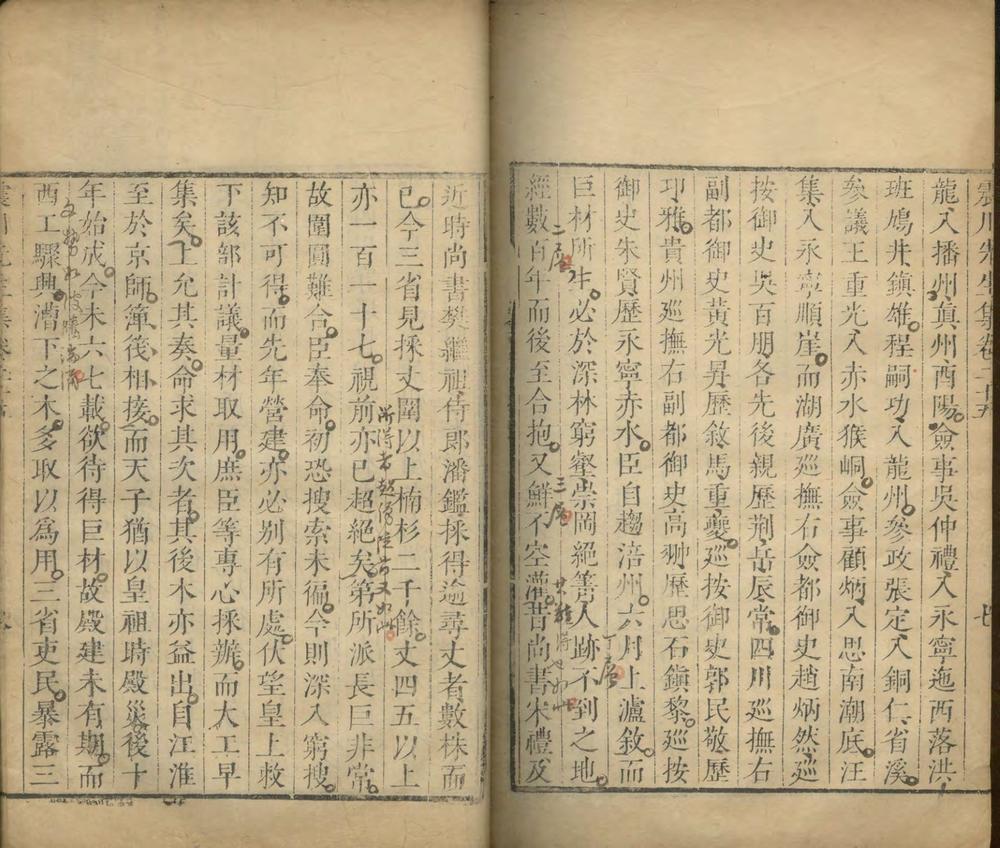 震川先生集卷二十五
七
龍入播州真州酉陽僉事吳仲禮入永寧迤西落洪
班鳩井鎮雄程嗣功入龍州參政張定入銅仁省溪
參議王重光入赤水猴峒僉事顧炳入思南潮底汪
集入永寧順崖而湖廣巡撫右僉都御史趙炳然巡
按御史吳百朋各先後親歷荆岳辰常四川巡撫右
副都御史黃光昇歷敘馬重夔巡按御史郭民敬歷
卭雅貴州巡撫右副都御史高翀歷思石鎮黎巡按
御史朱賢歷永寧赤水臣自趨涪州六月上瀘敘而
巨材所生必於深林窮壑崇岡絕箐人跡不到之地
經數百年而後至合抱又鮮不空灌昔尚書宋禮及
二層
三層
丁層
近時尚書樊繼祖侍郎潘鑑採得逾尋丈者數株而
已今三省見採丈圍以上楠杉二千餘丈四五以上
亦一百一十七視前亦已超絕矣第所派長巨非常
故圍圓難合臣奉命初恐搜索未徧今則深入窮搜
知不可得而先年營建亦必别有所處伏望皇上敕
下該部計議量材取用庶臣等專心採辦而大工早
集矣上允其奏命求其次者其後木亦益出自江淮
至於京師簰筏相接而天子猶以皇祖時殿災後十
年始成今未六七載欲待得巨材故殿建未有期而
西工驟興漕下之木多取以爲用三省吏民暴露三